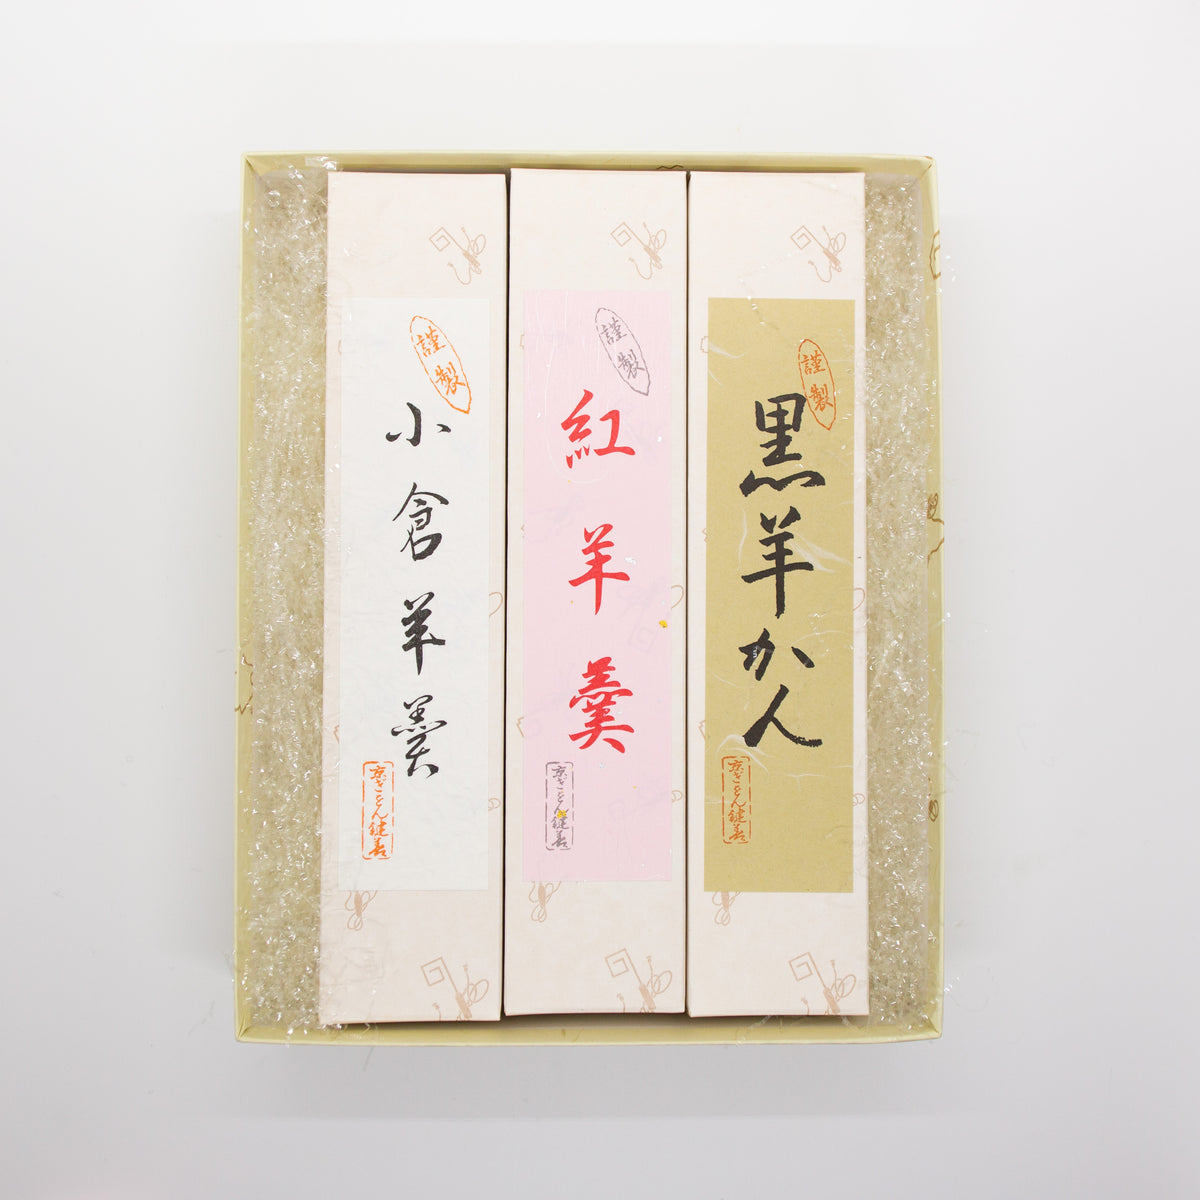 謹製
小倉羊羹
京ぎをん鍵善
謹製
紅羊羹
京ぎをん鍵善
謹製
黒羊かん
京ぎをん鍵善